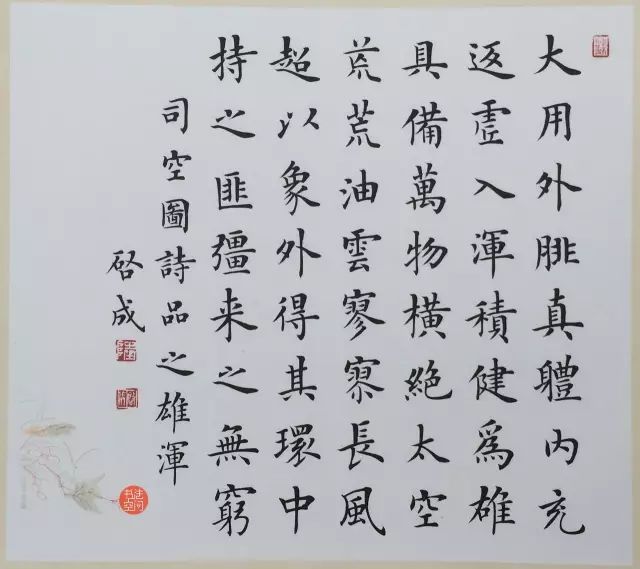 大用外腓真體内充
返虛入渾積健爲雄
具備萬物横絶太空
荒荒油雲寥寥長風
超以象外得其環中
持之匪彊来之無窮
司空圖詩品之雄渾
啓成